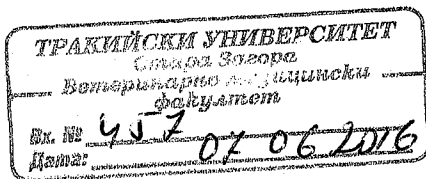 ТРАКИЙСКИ УНИВЕРСИТЕТ
Стара Загора
Ветеринарно медицински
факултет
Вх. № 457
Дата: 07 06 2016